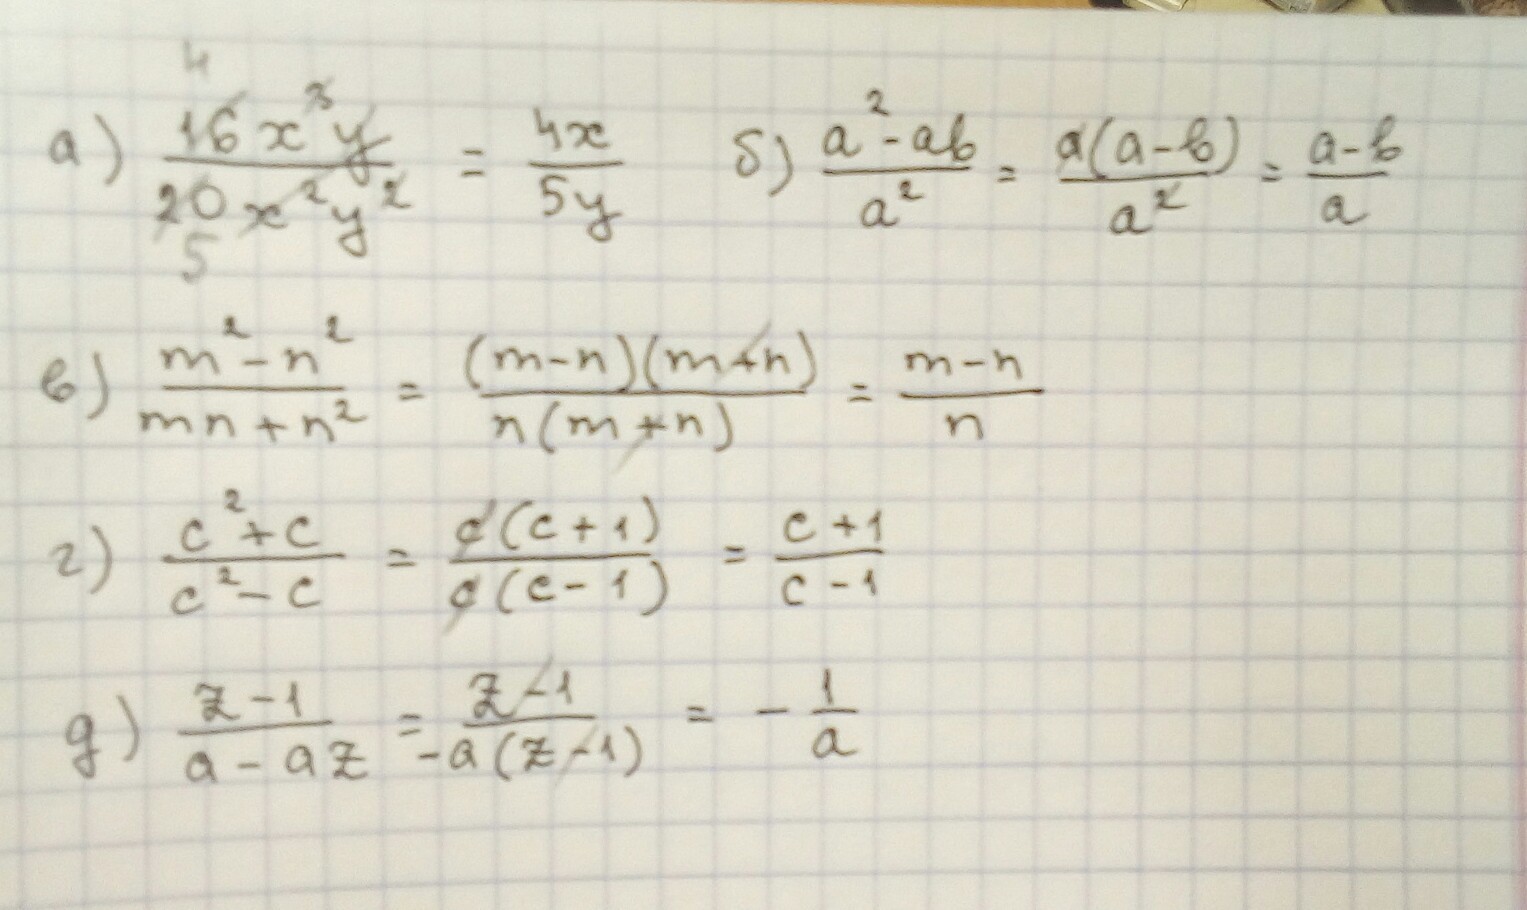 а) 16x³y / 20x²y² = 4x / 5y   б) a²-ab / a² = a(a-b) / a² = a-b / a
4
5
в) m²-n² / mn+n² = (m-n)(m+n) / n(m+n) = m-n / n
г) c²+c / c²-c = c(c+1) / c(c-1) = c+1 / c-1
д) z-1 / a-az = z-1 / -a(z-1) = - 1 / a